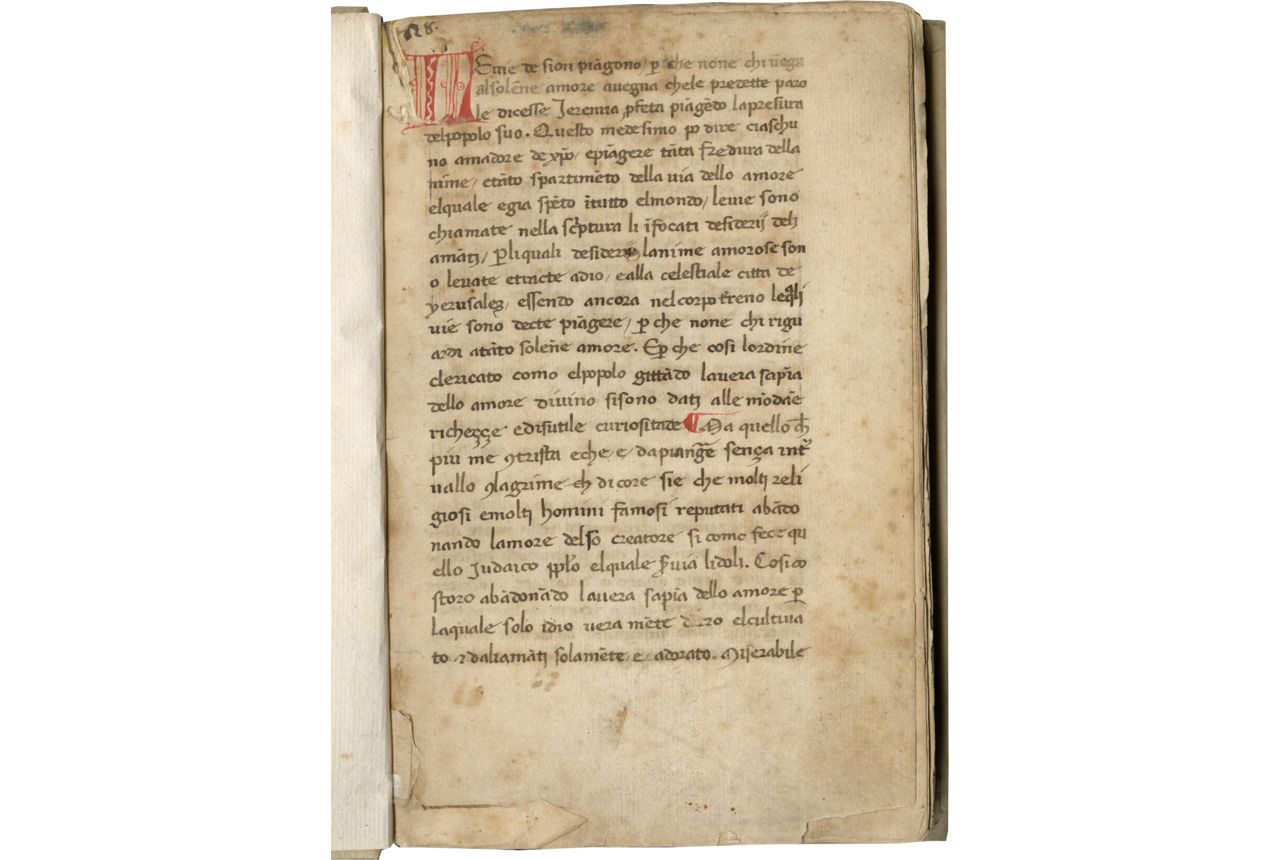 128.
LEvie de sion piāgono / ꝑ che none chi vēga
alsolēne amore avegna chele predette paro
le dicesse Jeremia ꝓfeta piāgēdo lapresura
delpopolo suo. Questo medesimo po dire ciaschu
no amadore dexp̄o / epiāgere tāta fredura della
nime / etāto spartimēto della via dello amore
elquale egia spēto ītutto elmondo / levie sono
chiamate nella sc̄ptura li īfocati desiderij deli
amāti / Ꝑliquali desiderij lanime amorose son
o levate etracte adio / ealla celestiale citta de
yerusaleȝ / essendo ancora nelcorpo t̄reno leq̄li
vie sono decte piāgere / ꝑ che none chi rigu
ardi atāto solēne amore. Eꝑ che cosi lordine
clericato como elpopolo gittādo lavera sapīa
dello amore divino sisono dati alle mōdāe
richeççe edisutile curiositade ¶ Ma quello ch̄
piu me ꝯtrista eche / e / dapianḡe sença int̄
vallo ꝯlagrime ch̄ di core sie che molti reli
giosi emolti homini famosi reputati abādo
nando lamore delsō creatore si como fece qu
ello Judaico ppl̄o elquale s̄via lidoli. Cosi co
storo abādonādo lavera sapīa dello amore ꝑ
laquale solo idio vera mēte elcultiva
to ⁊ daliamāti solamēte / e / adorato. Miserabile